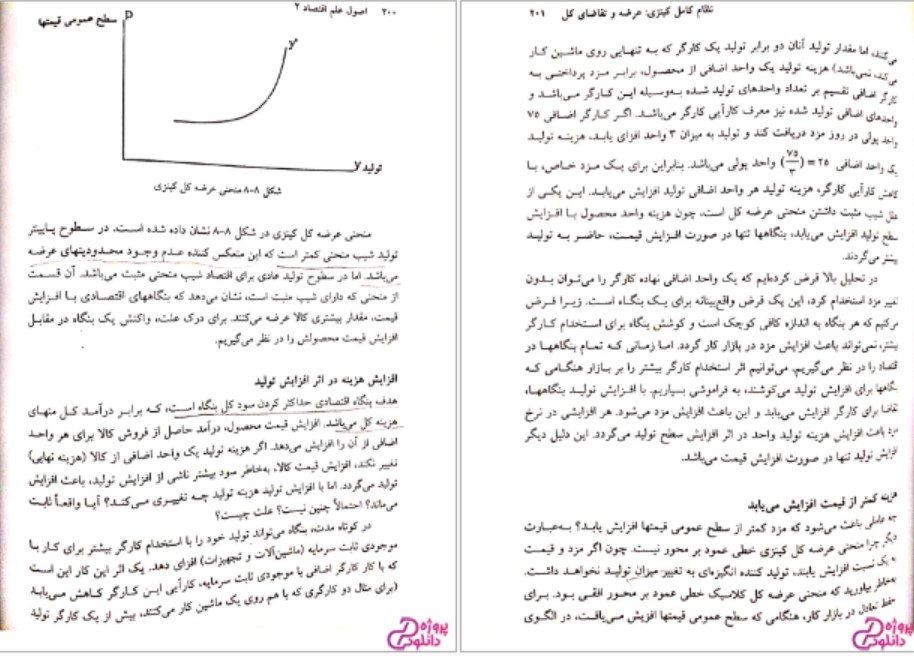 ۲۰۰ اصول علم اقتصاد ۲
سطح عمومی قیمتها
P
y
تولید y
شکل ۸-۸ منحنی عرضه کل کینزی
منحنی عرضه کل کینزی در شکل ۸-۸ نشان داده شده است. در سطوح پایینتر
تولید شیب منحنی کمتر است که این منعکس کننده عدم وجود محدودیتهای عرضه
می‌باشد. اما در سطوح تولید عادی برای اقتصاد شیب منحنی مثبت می‌باشد. آن قسمت
از منحنی که دارای شیب مثبت است، نشان می‌دهد که بنگاههای اقتصادی با افزایش
قیمت، مقدار بیشتری کالا عرضه می‌کنند. برای درک علت، واکنش یک بنگاه در مقابل
افزایش قیمت محصولش را در نظر می‌گیریم.
افزایش هزینه در اثر افزایش تولید
هدف بنگاه اقتصادی حداکثر کردن سود کل بنگاه است، که برابر درآمد کل منهای
هزینه کل می‌باشد. افزایش قیمت محصول، درآمد حاصل از فروش کالا برای هر واحد
اضافی از آن را افزایش می‌دهد. اگر هزینه تولید یک واحد اضافی از کالا (هزینه نهایی)
تغییر نکند، افزایش قیمت کالا، به‌خاطر سود بیشتر ناشی از افزایش تولید، باعث افزایش
تولید می‌گردد. اما با افزایش تولید هزینه تولید چه تغییری می‌کند؟ آیا واقعاً ثابت
می‌ماند؟ احتمالاً چنین نیست؟ علت چیست؟
در کوتاه مدت، بنگاه می‌تواند تولید خود را با استخدام کارگر بیشتر برای کار با
موجودی ثابت سرمایه (ماشین‌آلات و تجهیزات) افزای دهد. یک اثر این کار این است
که با کار کارگر اضافی با موجودی ثابت سرمایه، کارآیی این کارگر کاهش می‌یابد
(برای مثال دو کارگری که با هم روی یک ماشین کار می‌کنند، بیش از یک کارگر تولید
پروژه
دانلود
نظام کامل کینزی: عرضه و تقاضای کل ۲۰۱
می‌کند، اما مقدار تولید آنان دو برابر تولید یک کارگر که به تنهایی روی ماشین کار
می‌کند، نمی‌باشد) هزینه تولید یک واحد اضافی از محصول، برابر مزد پرداختی به
کارگر اضافی تقسیم بر تعداد واحدهای تولید شده به‌وسیله این کارگر می‌باشد و
واحدهای اضافی تولید شده نیز معرف کارآیی کارگر می‌باشد. اگر کارگر اضافی ۷۵
واحد پولی در روز مزد دریافت کند و تولید به میزان ۳ واحد افزای یابد، هزینه تولید
یک واحد اضافی ۲۵ = (۷۵/۳) واحد پولی می‌باشد. بنابراین برای یک مزد خاص، با
کاهش کارآیی کارگر، هزینه تولید هر واحد اضافی تولید افزایش می‌یابد. این یکی از
علل شیب مثبت داشتن منحنی عرضه کل است، چون هزینه واحد محصول با افزایش
سطح تولید افزایش می‌یابد، بنگاهها تنها در صورت افزایش قیمت، حاضر به تولید
بیشتر می‌گردند.
در تحلیل بالا فرض کرده‌ایم که یک واحد اضافی نهاده کارگر را می‌توان بدون
تغییر مزد استخدام کرد، این یک فرض واقع‌بینانه برای یک بنگاه است. زیرا فرض
می‌کنیم که هر بنگاه به اندازه کافی کوچک است و کوشش بنگاه برای استخدام کارگر
بیشتر، نمی‌تواند باعث افزایش مزد در بازار کار گردد. اما زمانی که تمام بنگاهها در
اقتصاد را در نظر می‌گیریم، می‌توانیم اثر استخدام کارگر بیشتر را بر بازار هنگامی که
بنگاهها برای افزایش تولید می‌کوشند، به فراموشی بسپاریم. با افزایش تولید بنگاهها،
تقاضا برای کارگر افزایش می‌یابد و این باعث افزایش مزد می‌شود. هر افزایشی در نرخ
مزد باعث افزایش هزینه تولید واحد در اثر افزایش سطح تولید می‌گردد. این دلیل دیگر
افزایش تولید تنها در صورت افزایش قیمت می‌باشد.
هزینه کمتر از قیمت افزایش می‌یابد
چه عاملی باعث می‌شود که مزد کمتر از سطح عمومی قیمتها افزایش یابد؟ به‌عبارت
دیگر چرا منحنی عرضه کل کینزی خطی عمود بر محور نیست. چون اگر مزد و قیمت
به یک نسبت افزایش یابند، تولید کننده انگیزه‌ای به تغییر میزان تولید نخواهد داشت.
به‌خاطر بیاورید که منحنی عرضه کل کلاسیک خطی عمود بر محور افقی بود. برای
حفظ تعادل در بازار کار، هنگامی که سطح عمومی قیمتها افزیش می‌یافت، در الگوی
پروژه
دانلود